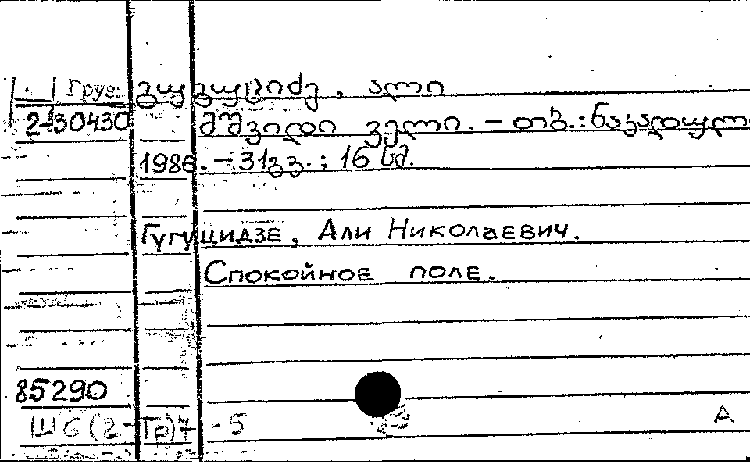 Груз. გუგუციძე, ალი
2-30430 მშვიდი ველი. – თბ.: ნაკადული
1986. – 31გვ.; 16 სმ.
Гугуцидзе, Али Николаевич.
Спокойное поле.
85290
Ш6(2-Гр)7 -5 А